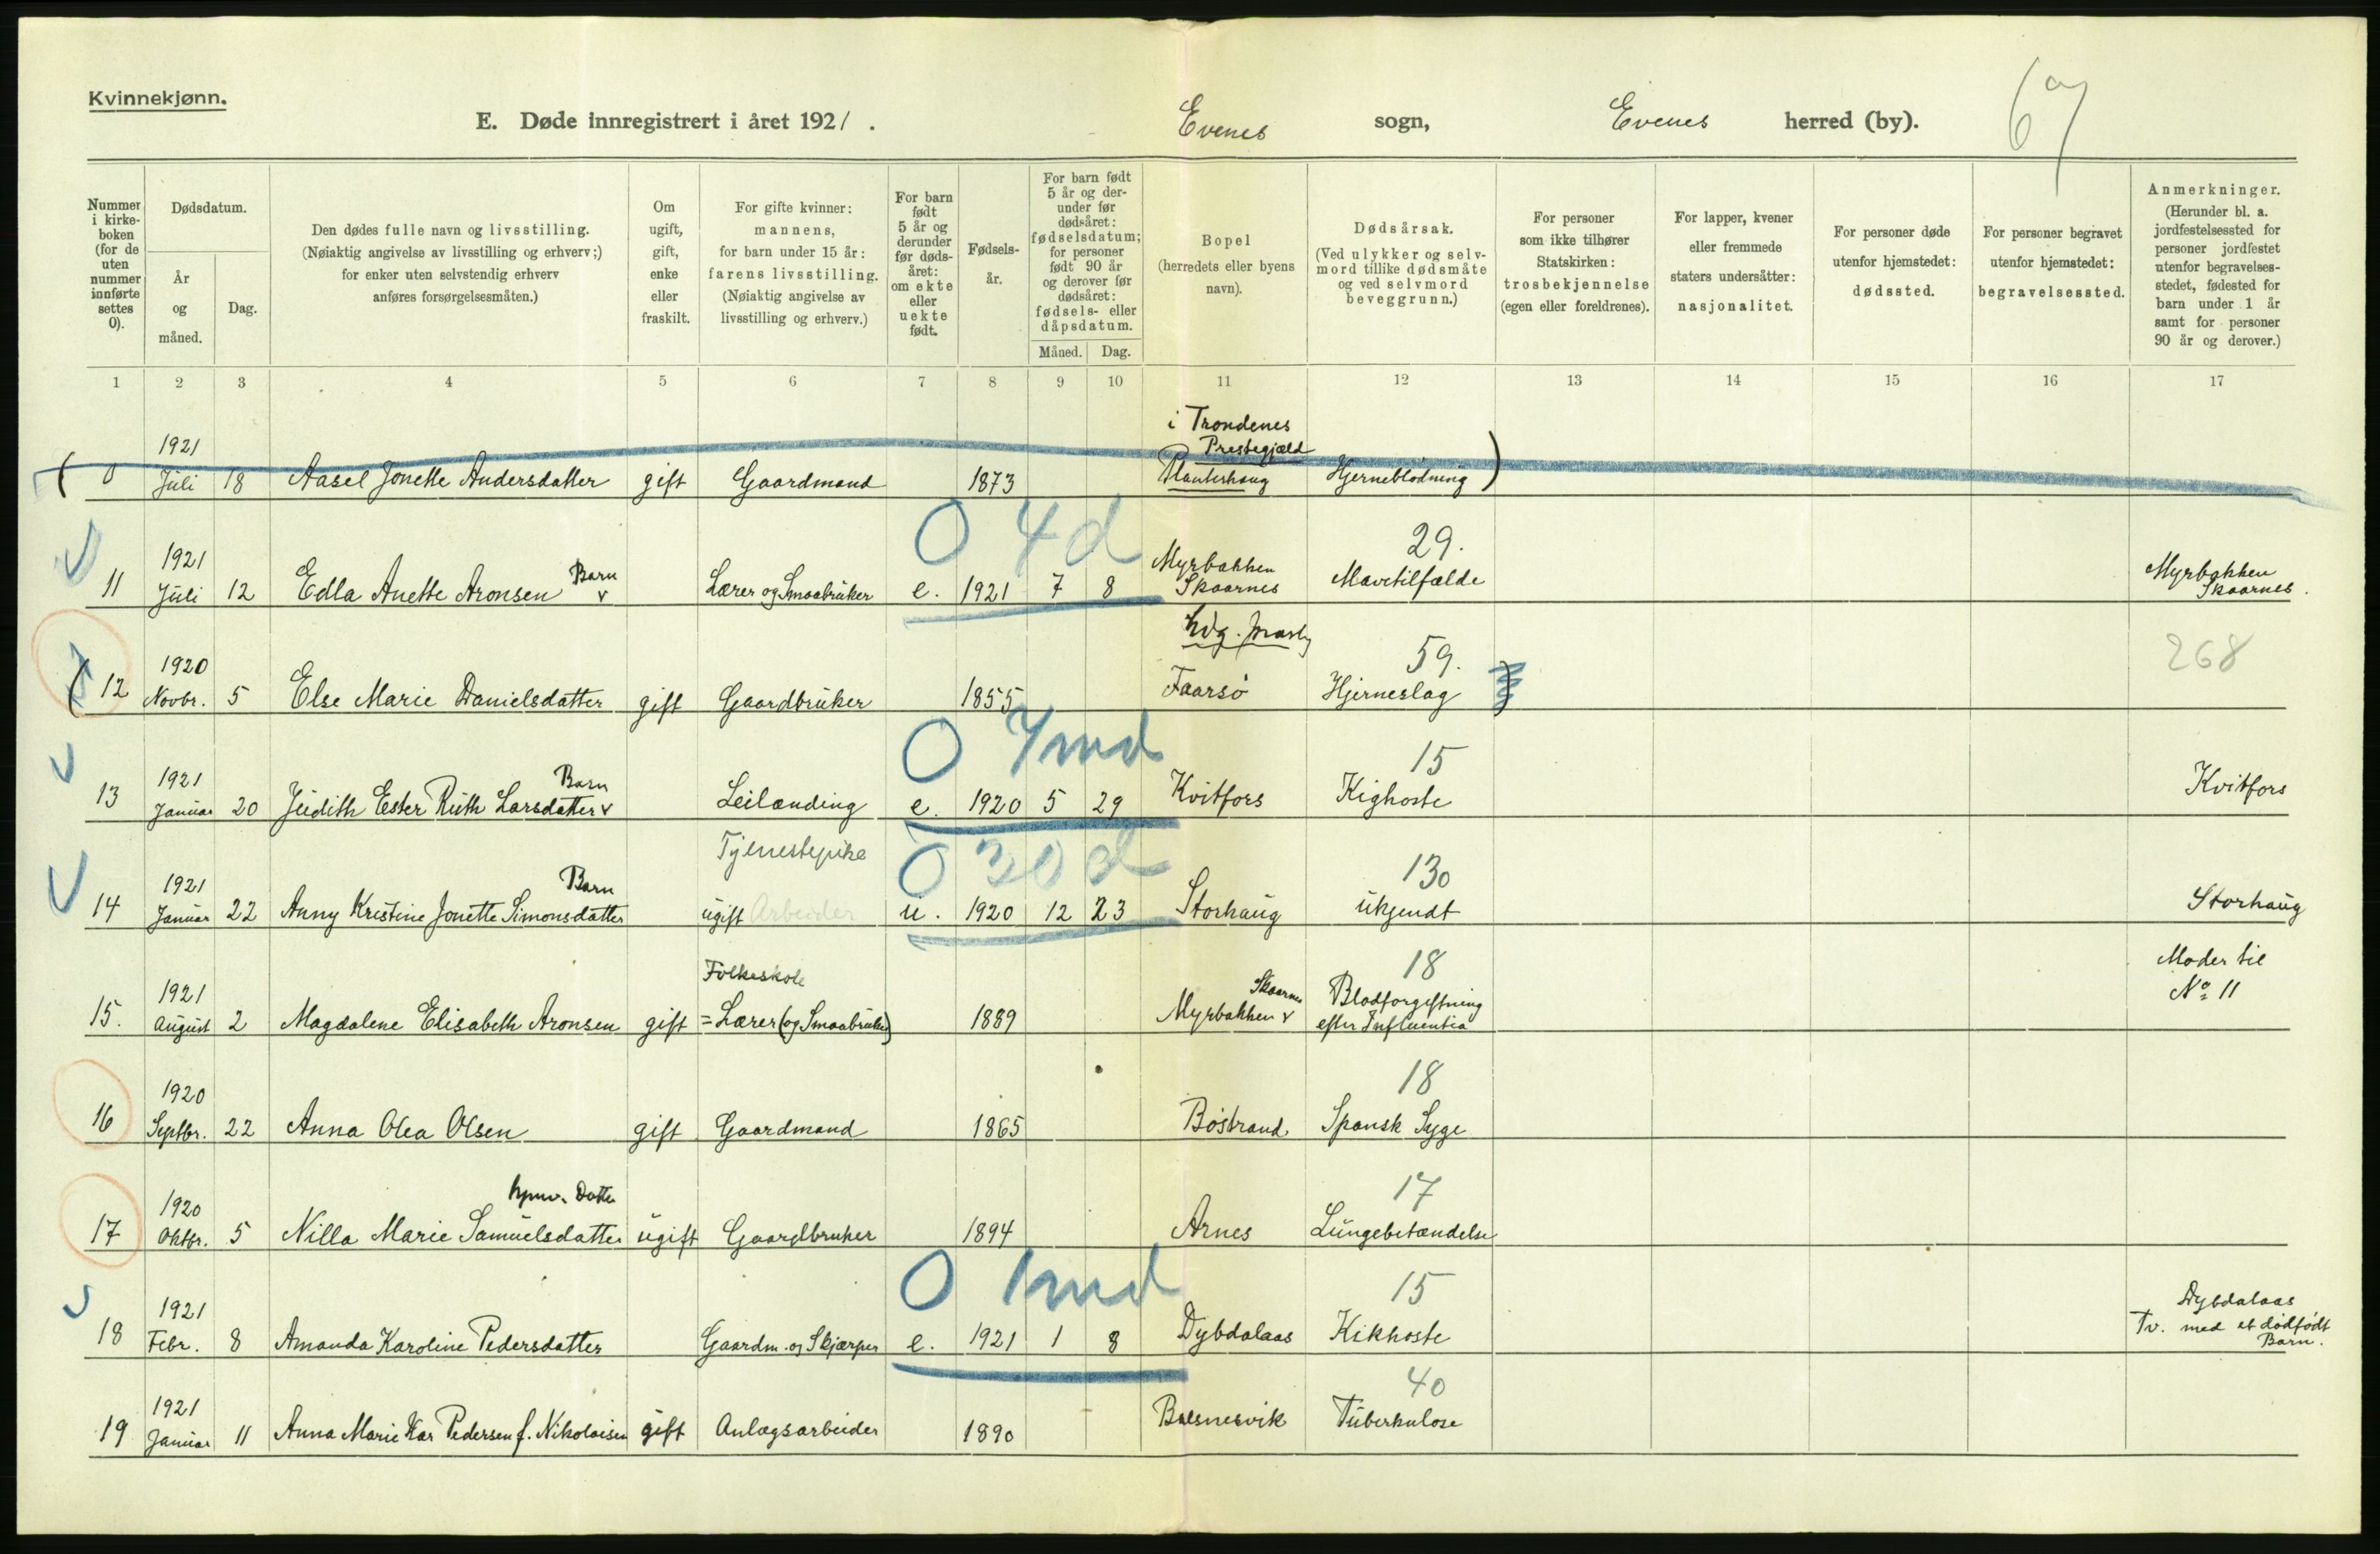 Kvinnekjønn.
E. Døde innregistrert i året 1921. Evenes sogn, Evenes herred (by). 67
Nummer i kirke-boken (for de uten nummer innførte settes 0).
Dødsdatum.
År og måned.
Dag.
Den dødes fulle navn og livsstilling.
(Nøiaktig angivelse av livsstilling og erhverv;)
for enker uten selvstendig erhverv
anføres forsørgelsesmåten.)
Om ugift, gift, enke eller fraskilt.
For gifte kvinner:
mannens,
for barn under 15 år:
farens livsstilling.
(Nøiaktig angivelse av
livsstilling og erhverv.)
For barn født 5 år og derunder før døds-året: om ekte eller uekte født.
Fødsels-år.
For barn født 5 år og der-under før dødsåret: fødselsdatum; for personer født 90 år og derover før dødsåret: fødsels- eller dåpsdatum.
Måned. Dag.
Bopel
(herredets eller byens
navn).
Dødsårsak.
(Ved ulykker og selv-
mord tillike dødsmåte
og ved selvmord
beveggrunn.)
For personer
som ikke tilhører
Statskirken:
trosbekjennelse
(egen eller foreldrenes).
For lapper, kvener
eller fremmede
staters undersåtter:
nasjonalitet.
For personer døde
utenfor hjemstedet:
dødssted.
For personer begravet
utenfor hjemstedet:
begravelsessted.
Anmerkninger.
(Herunder bl. a.
jordfestelsessted for
personer jordfestet
utenfor begravelses-
stedet, fødested for
barn under 1 år
samt for personer
90 år og derover.)
1 2 3 4 5 6 7 8 9 10 11 12 13 14 15 16 17
i Trondenes
1921 Prestegjæld
( 0 Juli 18 Aasel Jonette Andersdatter gift Gaardmand 1873 Planterhaug Hjerneblødning )
0 4d
1921 Barn Myrbakken 29. Myrbakken
11 Juli 12 Edla Anette Aronsen v Lærer og Smaabruker e. 1921 7 8 Skaarnes Mavetilfælde Skaarnes.
1920 59. 268
( 12 Novbr. 5 Else Marie Danielsdatter gift Gaardbruker 1855 Faarsø Hjerneslag )
0 7 md
1921 Barn 15
13 Januar 20 Judith Ester Ruth Larsdatter v Leilænding e. 1920 5 29 Kvitfors Kighoste Kvitfors
Tjenestepike 0 30 d
1921 Barn 130
14 Januar 22 Anny Kristine Jonette Simonsdatter ugift Arbeider u. 1920 12 23 Storhaug ukjendt Storhaug
Folkeskole 18 Moder til
1921 Skaarnes Blodforgiftning No 11
15. August 2 Magdalene Elisabeth Aronsen gift = Lærer (og Smaabruker) 1889 Myrbakken v efter Influentia
1920 18
16 Septbr. 22 Anna Olea Olsen gift Gaardmand 1865 Bøstrand Spansk Syge
1920 hjemv. Datter 17
17 Oktbr. 5 Nilla Marie Samuelsdatter ugift Gaardbruker 1894 Arnes Lungebetændelse
0 1 md
1921 15 Dybdalaas
18 Febr. 8 Amanda Karoline Pedersdatter Gaardm. og Skjærper e. 1921 1 8 Dybdalaas Kikhoste Tv. med et dødfødt
Barn.
1921 40
19 Januar 11 Anna Marie Kar Pedersen f. Nikolaisen gift Anlægsarbeider 1890 Balsnesvik Tuberkulose